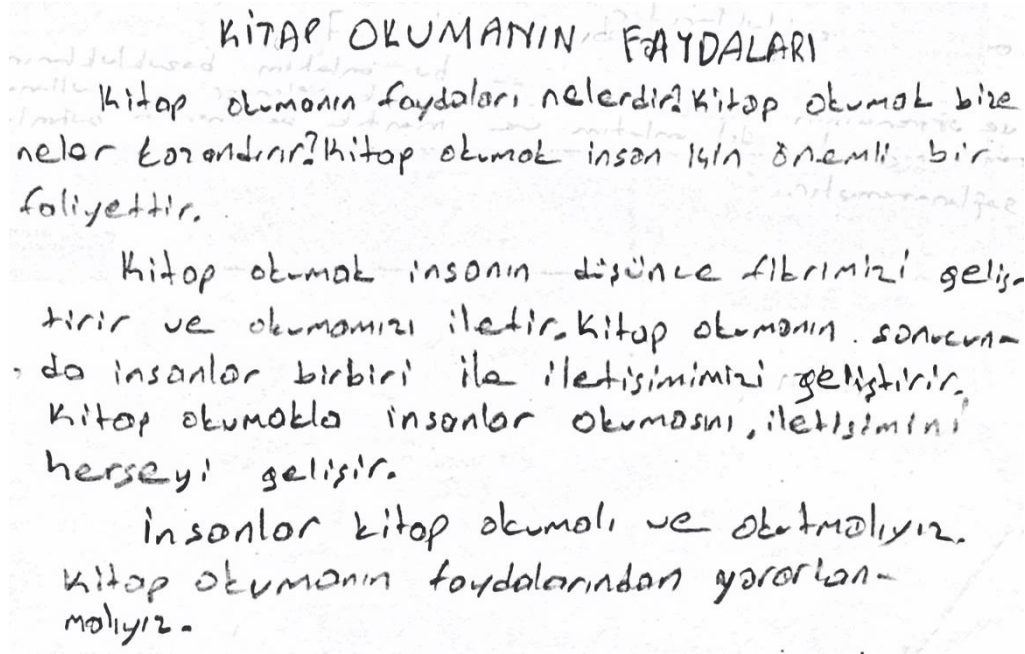 KİTAP OKUMANIN FAYDALARI
Kitap okumanın faydaları nelerdir? Kitap okumak bize
neler kazandırır? Kitap okumak insan için önemli bir
faliyettir.
Kitap okumak insanın düşünce fikrimizi geliş-
tirir ve okumamızı iletir. Kitap okumanın sonucun-
da insanlar birbiri ile iletişimimizi geliştirir.
Kitap okumakla insanlar okumasını, iletişimini
herseyi gelişir.
İnsanlar kitap okumalı ve okutmalıyız.
Kitap okumanın faydalarından yararlan-
malıyız.